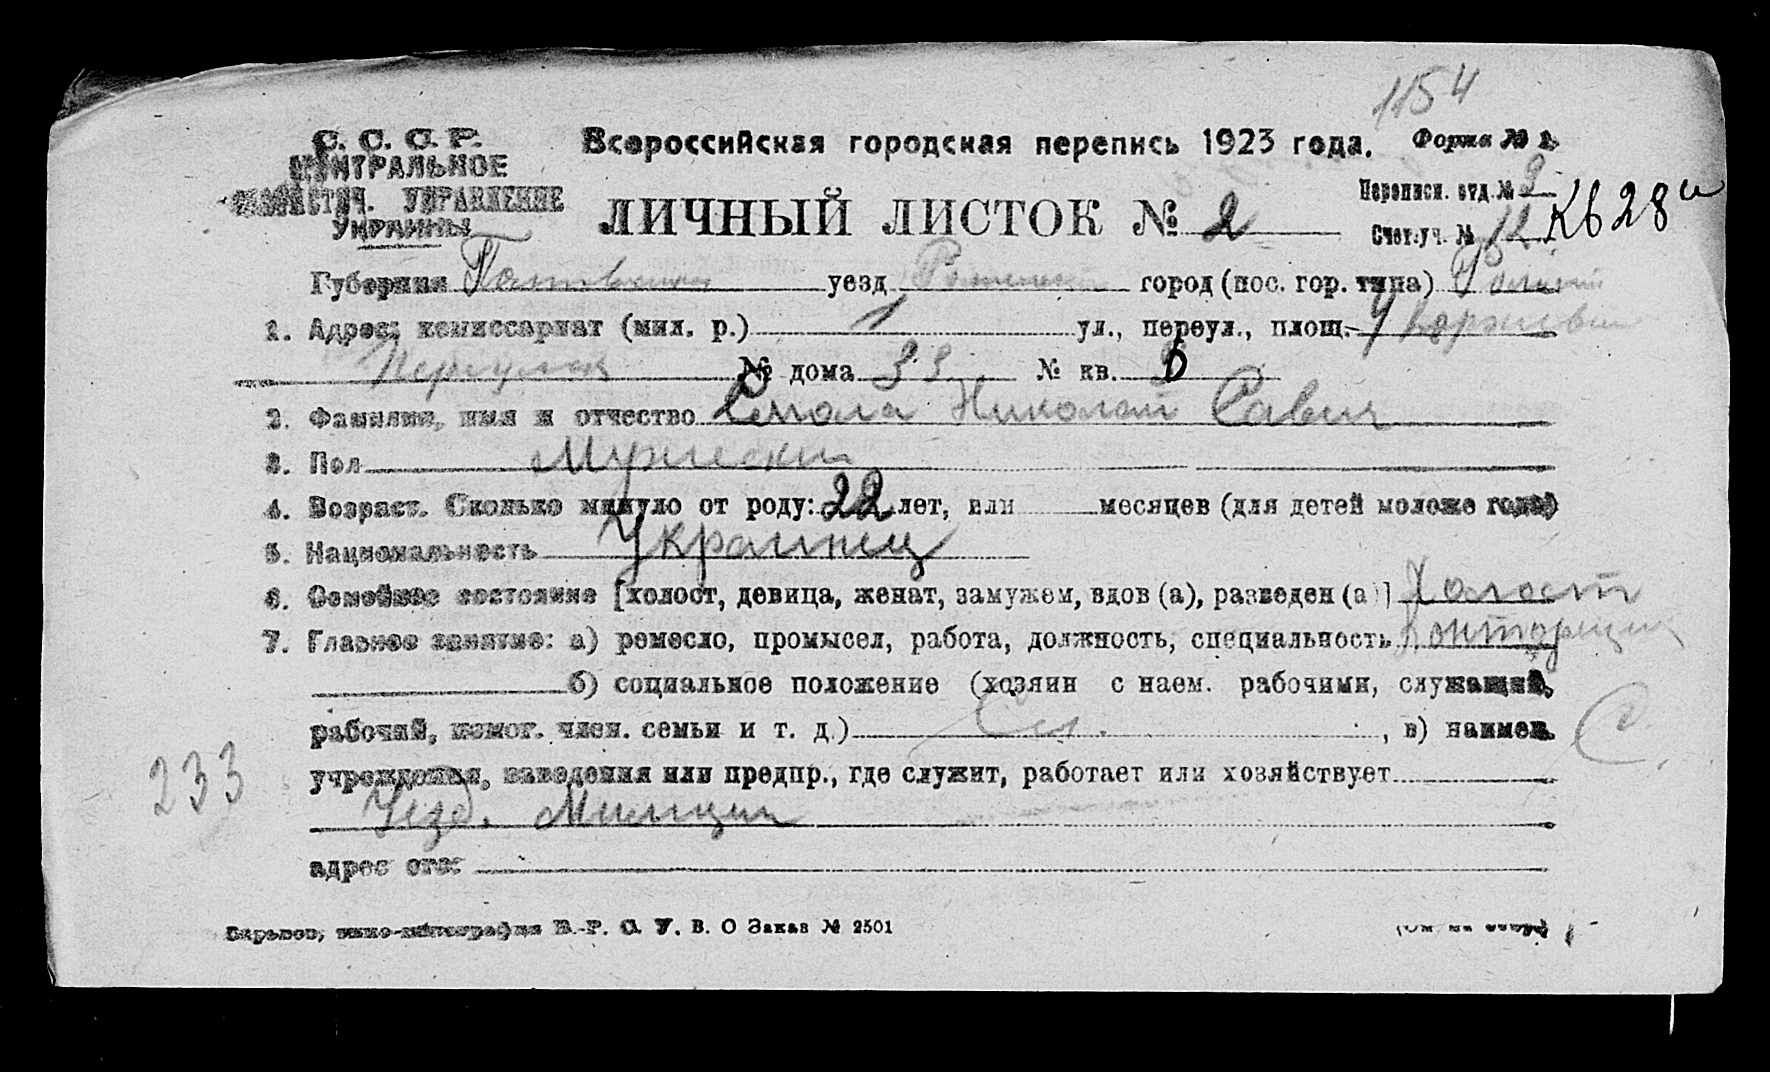 1154
С. С. С. Р.
ЦЕНТРАЛЬНОЕ
СТАТИСТИЧ. УПРАВЛЕНИЕ
УКРАИНЫ
Всероссийская городская перепись 1923 года. Форма № 1.
Переписн. отд. № 9
ЛИЧНЫЙ ЛИСТОК № 2
Счет. уч. № 12 К628и
Губерния Полтавская уезд Роменский город (пос. гор. типа) Ромны
1. Адрес: комиссариат (мил. р.) 1 ул., переул., площ.
Переулок № дома 33 № кв.
2. Фамилия, имя и отчество Николай Савич
3. Пол Мужески
4. Возраст. Сколько минуло от роду: 22 лет, или месяцев (для детей моложе года)
5. Национальность Украинец
6. Семейное состояние [холост, девица, женат, замужем, вдов (а), разведен (а)] Холост
7. Главное занятие: а) ремесло, промысел, работа, должность, специальность Конторщик
б) социальное положение (хозяин с наем. рабочими, служащий,
рабочий, помог. член. семьи и т. д.) Сл. , в) наимен. С
учреждения, заведения или предпр., где служит, работает или хозяйствует
233
Уезд. Милиции
адрес его:
Харьков, типо-литография В. Р. С. У. В. О Заказ № 2501
(См. на обор.)